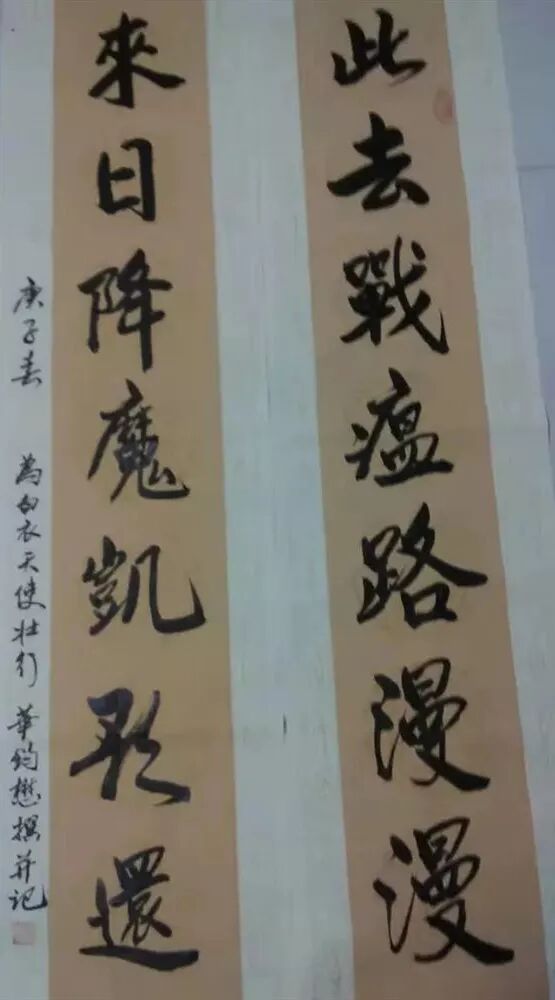 此去戰瘟路漫漫
來日降魔凱歌還
庚子春 為白衣天使壯行 華鈞懋撰并记